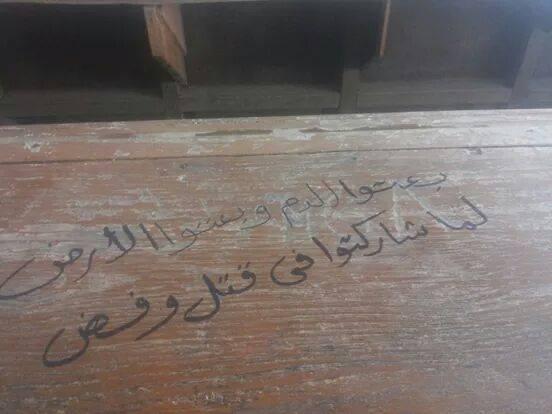 بعتوا الدم وبعتوا الأرض
لما شاركتوا فى قتل وفض